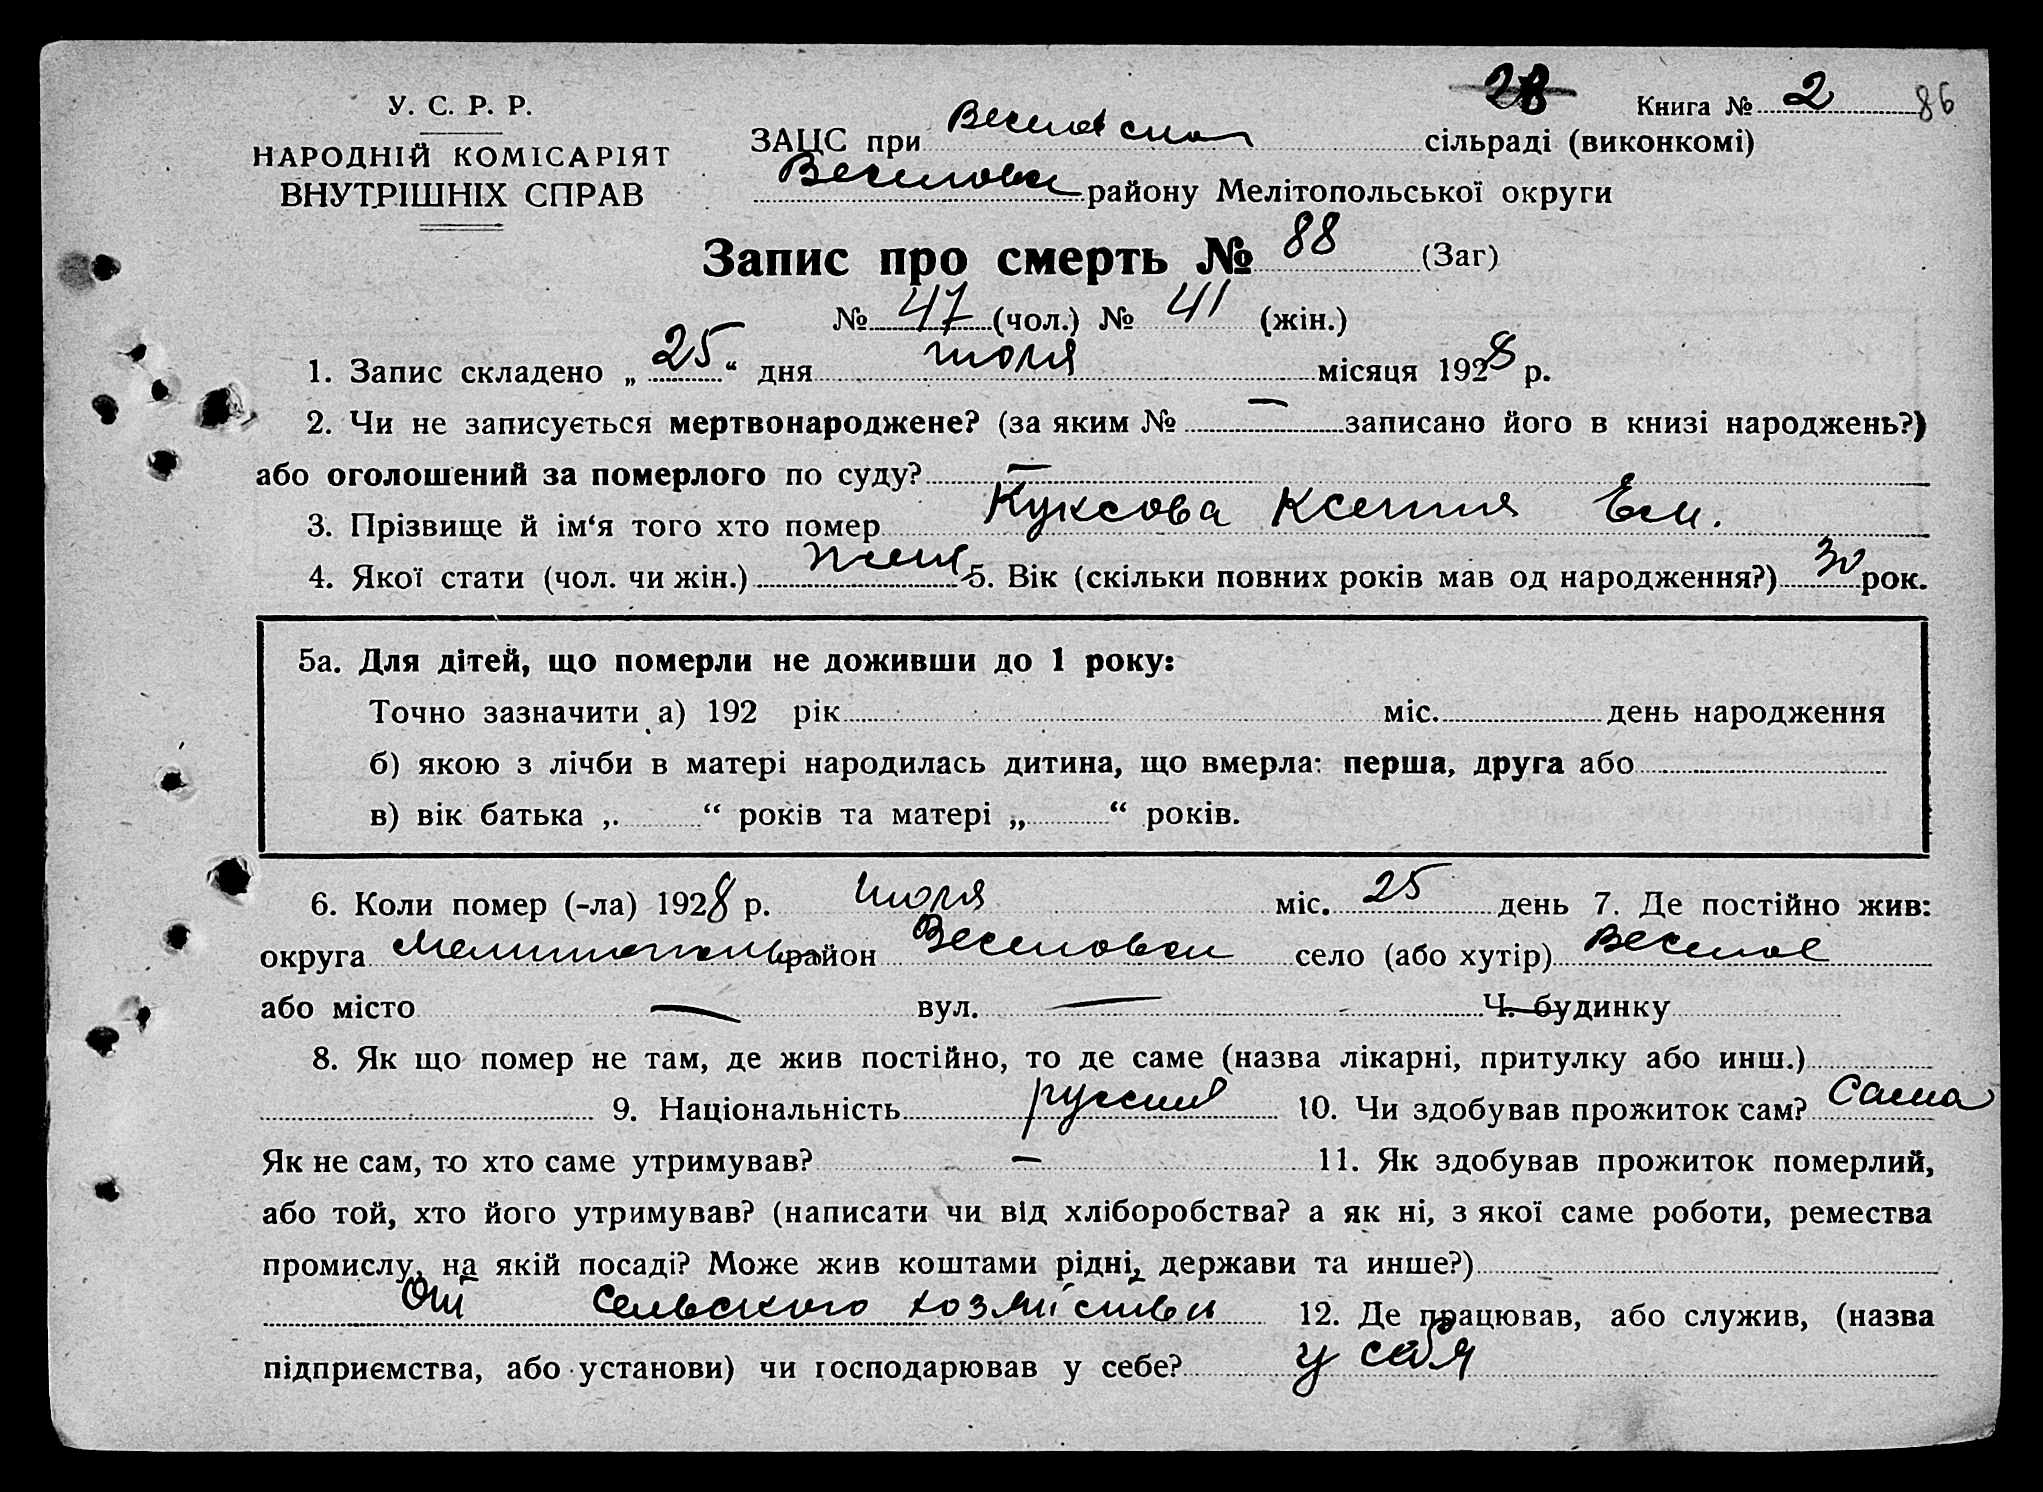 У. С. Р. Р.
НАРОДНІЙ КОМІСАРІЯТ
ВНУТРІШНІХ СПРАВ
Книга № 2 86
ЗАЦС при сільраді (виконкомі)
Веселовск району Мелітопольської округи
Запис про смерть № 88 (Заг)
№ 47 (чол.) № 41 (жін.)
1. Запис складено „ 25 “ дня июля місяця 1928 р.
2. Чи не записується мертвонароджене? (за яким № — записано його в книзі народжень?)
або оголошений за померлого по суду? —
3. Прізвище й ім‘я того хто помер Куксова Ксения Ем.
4. Якої стати (чол. чи жін.) жен 5. Вік (скільки повних років мав од народження?) рок.
5а. Для дітей, що померли не доживши до 1 року:
Точно зазначити а) 192 рік міс. день народження
б) якою з лічби в матері народилась дитина, що вмерла: перша, друга або
в) вік батька „ “ років та матері „ “ років.
6. Коли помер (-ла) 1928 р. июля міс. 25 день 7. Де постійно жив:
округа Мелитополь район Веселовск село (або хутір) Веселое
або місто — вул. — Ч. будинку
8. Як що помер не там, де жив постійно, то де саме (назва лікарні, притулку або инш.)
9. Національність русский 10. Чи здобував прожиток сам? Сама
Як не сам, то хто саме утримував? — 11. Як здобував прожиток померлий,
або той, хто його утримував? (написати чи від хліборобства? а як ні, з якої саме роботи, ремества
промислу, на якій посаді? Може жив коштами рідні, держави та инше?)
От Сельского хозяйства 12. Де працював, або служив, (назва
підприємства, або установи) чи господарював у себе? у себя